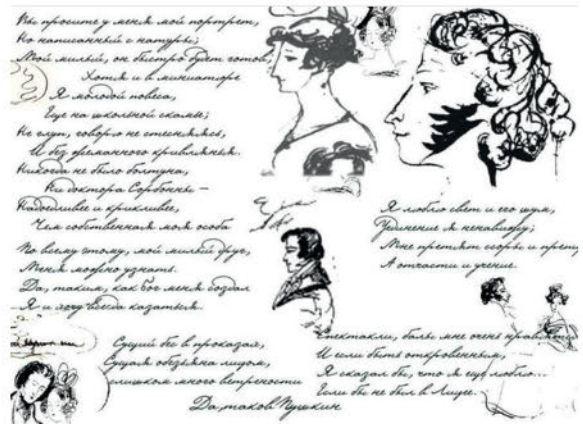 Вы просите у меня мой портрет,
Но написанный с натуры;
Мой милый, он быстро будет готов,
Хотя и в миниатюре
Я молодой повеса,
Еще на школьной скамье;
Не глуп, говорю не стесняясь,
И без жеманного кривлянья.
Никогда не было болтуна,
Ни доктора Сорбонны –
Надоедливее и крикливее,
Чем собственная моя особа
По всему этому, мой милый друг,
Меня можно узнать.
Да, таким, как Бог меня создал
Я и хочу всегда казаться.
Сущий бес в проказах,
Сущая обезьяна лицом,
слишком много ветрености
Да, таков Пушкин
Я люблю свет и его шум,
Уединение я ненавижу;
Мне претят ссоры и
А отчасти и учение.
спектакли, балы мне очень
И если быть откровенным,
Я сказал бы, что я еще люблю...
Если бы не был в Лицее.